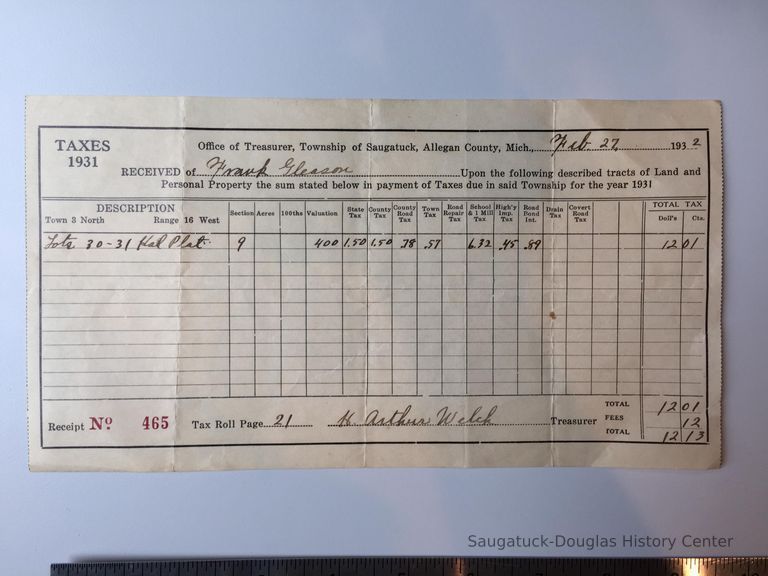 TAXES
1931
Office of Treasurer, Township of Saugatuck, Allegan County, Mich., Feb. 27, 1932
RECEIVED of Frank Gleason Upon the following described tracts of Land and
Personal Property the sum stated below in payment of Taxes due in said Township for the year 1931
DESCRIPTION
Town 3 North Range 16 West
Section Acres 100ths Valuation State Tax County Tax County Road Tax Town Tax Road Repair Tax School & 1 Mill Tax High'y Imp. Tax Road Bond Int. Drain Tax Covert Road Tax
TOTAL TAX
Doll's Cts.
Lots 30-31 Kal Plat. 9 400 1.50 1.50 .78 .57 6.32 .45 .89 12 01
TOTAL 12 01
FEES 12
TOTAL 12 13
Receipt No 465 Tax Roll Page 21 H. Arthur Welch Treasurer
Saugatuck-Douglas History Center